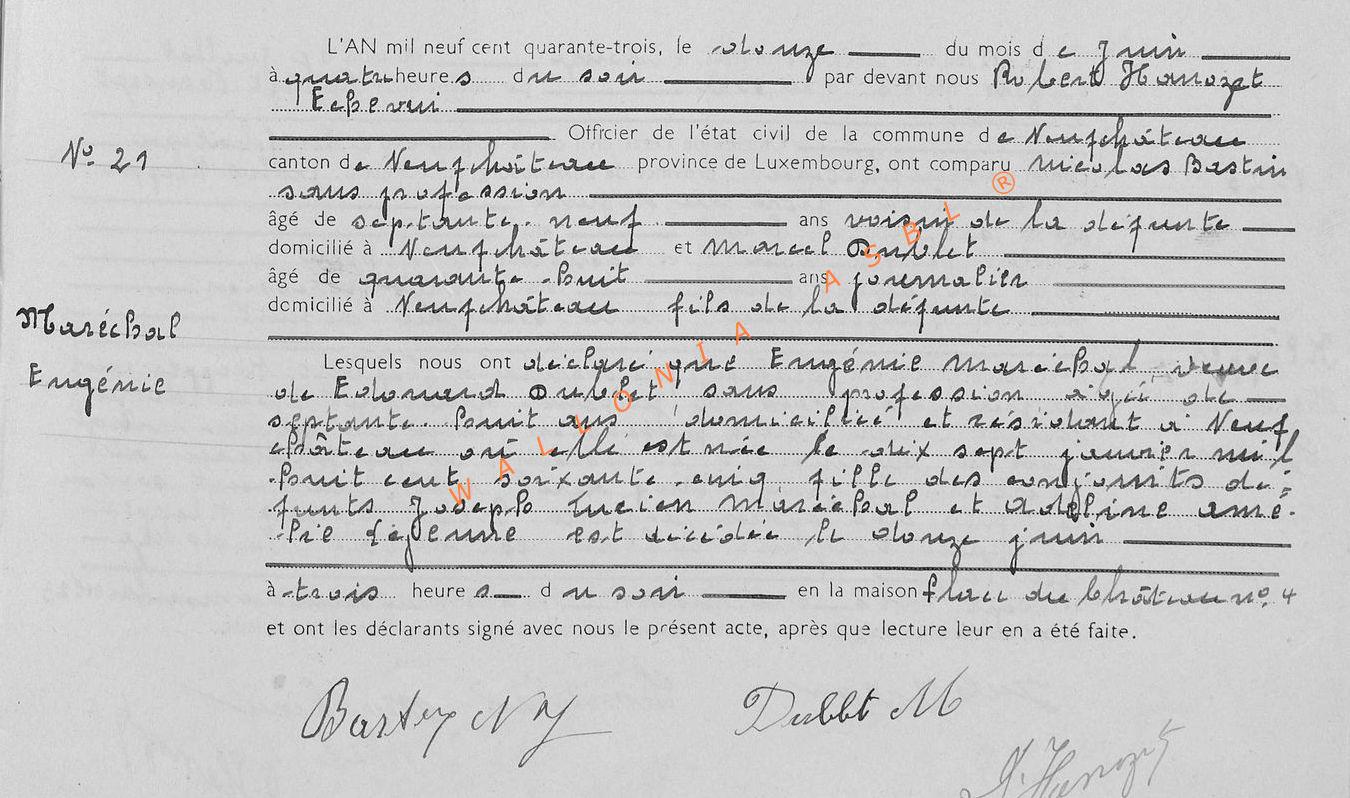 L'AN mil neuf cent quarante-trois, le douze du mois de Juin
à quatre heures du soir par devant nous Robert Hanozet
Echevin
Officier de l'état civil de la commune de Neufchâteau
N° 21
canton de Neufchâteau province de Luxembourg, ont comparu Nicolas Bastin
sans profession
âgé de septante-neuf ans voisin de la défunte
domicilié à Neufchâteau et Marcel Dublet
âgé de quarante-huit ans journalier
domicilié à Neufchâteau fils de la défunte
Maréchal
Eugénie
Lesquels nous ont déclaré que Eugénie Maréchal veuve
de Edouard Dublet sans profession âgée de
septante-huit ans domiciliée et résidant à Neuf
château où elle est née le dix sept janvier mil
huit cent soixante-cinq fille des conjoints dé-
funts Joseph Lucien Maréchal et Adeline Amé-
lie Lejeune est décédée le douze juin
à trois heures du soir en la maison place du Château n° 4
et ont les déclarants signé avec nous le présent acte, après que lecture leur en a été faite.
WALLONIA ASBL ®
Bastin N Dublet M
Hanozet